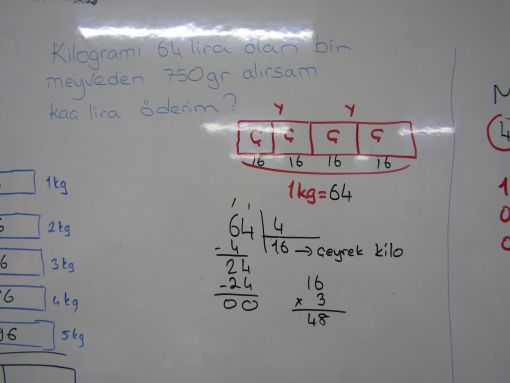 Kilogramı 64 lira olan bir
meyveden 750gr alırsam
kaç lira öderim?
Y Y
Ç Ç Ç Ç
16 16 16 16
1kg=64
64 4
- 4 16 → çeyrek kilo
24
-24
00
16
x 3
48
1kg
2kg
6 3kg
6 4kg
96 5kg
M
4
1
0
0